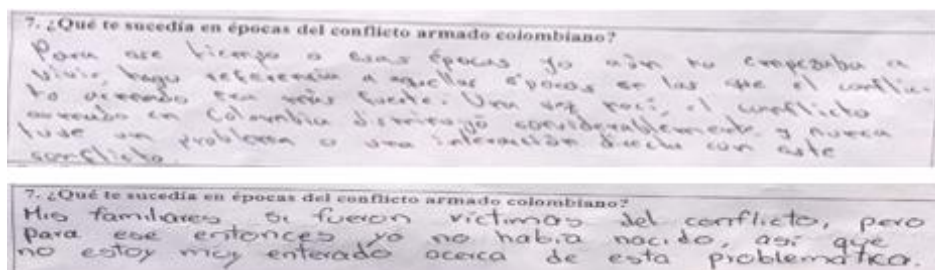 7. ¿Qué te sucedía en épocas del conflicto armado colombiano?
Para ese tiempo o esas épocas yo aún no empezaba a
vivir, hago referencia a aquellas épocas en las que el conflic-
to armado era más fuerte. Una vez nací, el conflicto
armado en Colombia disminuyó considerablemente y nunca
tuve un problema o una interacción directa con este
conflicto.
7. ¿Qué te sucedía en épocas del conflicto armado colombiano?
Mis familiares si fueron victimas del conflicto, pero
para ese entonces yo no había nacido, así que
no estoy muy enterado acerca de esta problematica.